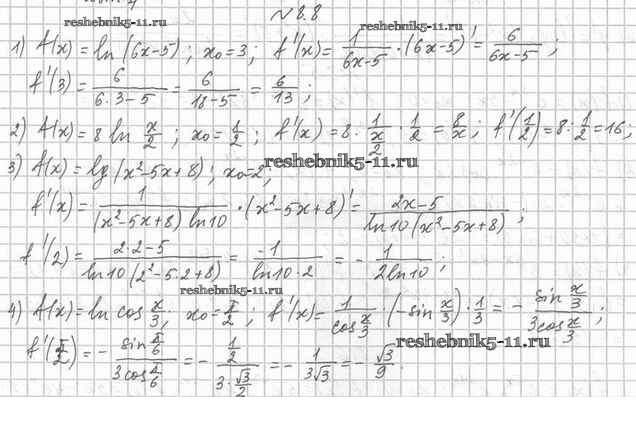 № 8.8
reshebnik5-11.ru reshebnik5-11.ru
1) f(x) = ln(6x-5); x₀=3; f'(x) = 1/(6x-5) · (6x-5)' = 6/(6x-5);
f'(3) = 6/(6·3-5) = 6/(18-5) = 6/13;
2) f(x) = 8 ln x/2; x₀ = 1/2; f'(x) = 8 · 1/(x/2) · 1/2 = 8/x; f'(1/2) = 8 · 1/2 = 16;
3) f(x) = lg(x²-5x+8); x₀=2;
reshebnik5-11.ru
f'(x) = 1/((x²-5x+8) ln10) · (x²-5x+8)' = (2x-5)/(ln10(x²-5x+8));
f'(2) = (2·2-5)/(ln10(2²-5·2+8)) = -1/(ln10·2) = - 1/(2ln10);
reshebnik5-11.ru
4) f(x) = ln cos x/3; x₀ = π/2; f'(x) = 1/(cos x/3) · (-sin x/3) · 1/3 = - (sin x/3)/(3cos x/3);
f'(π/2) = - (sin π/6)/(3cos π/6) = - (1/2)/(3·√3/2) = - 1/(3√3) = - √3/9.
reshebnik5-11.ru